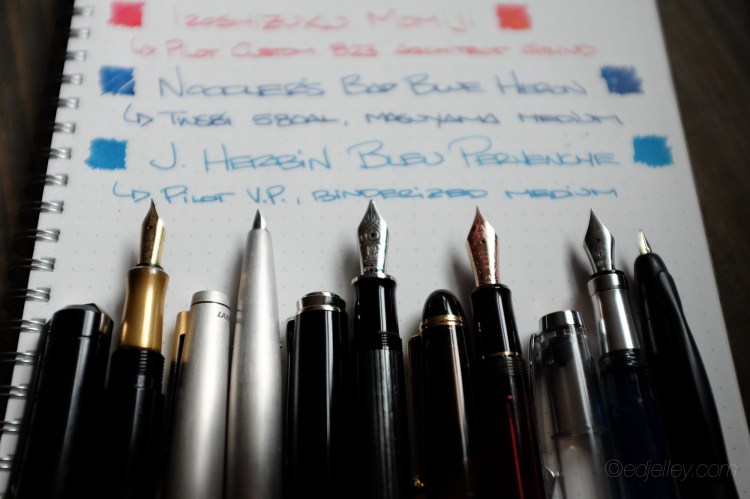 IROSHIZUKU MOMIJI
↳ PILOT CUSTOM 823 ARCHITECT GRIND
NOODLER'S BAD BLUE HERON
↳ TWSBI 580AL, MASUYAMA MEDIUM
J. HERBIN BLEU PERVENCHE
↳ PILOT V.P., BINDERIZED MEDIUM
©edjelley.com